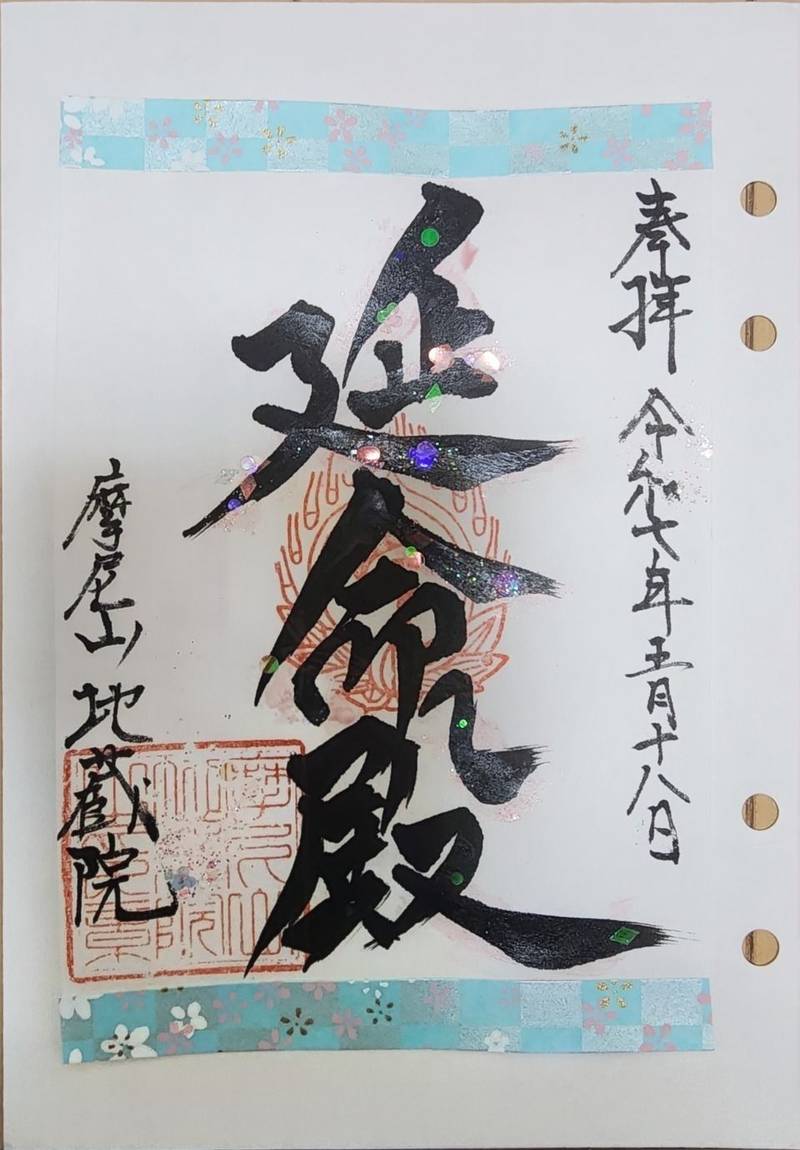 奉拝 令和七年五月十八日
延命殿
摩尼山 地蔵院